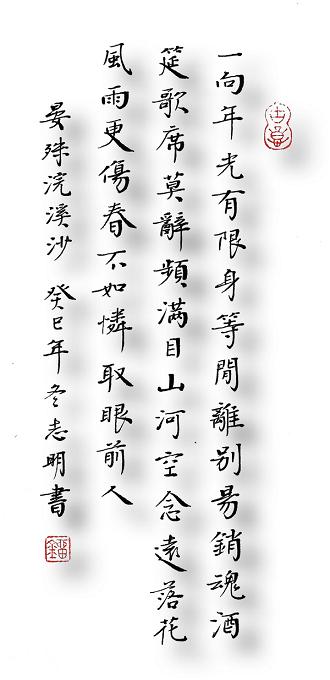 一向年光有限身等閒離別易銷魂酒
筵歌席莫辭頻滿目山河空念遠落花
風雨更傷春不如憐取眼前人
晏殊浣溪沙 癸巳年冬志明書